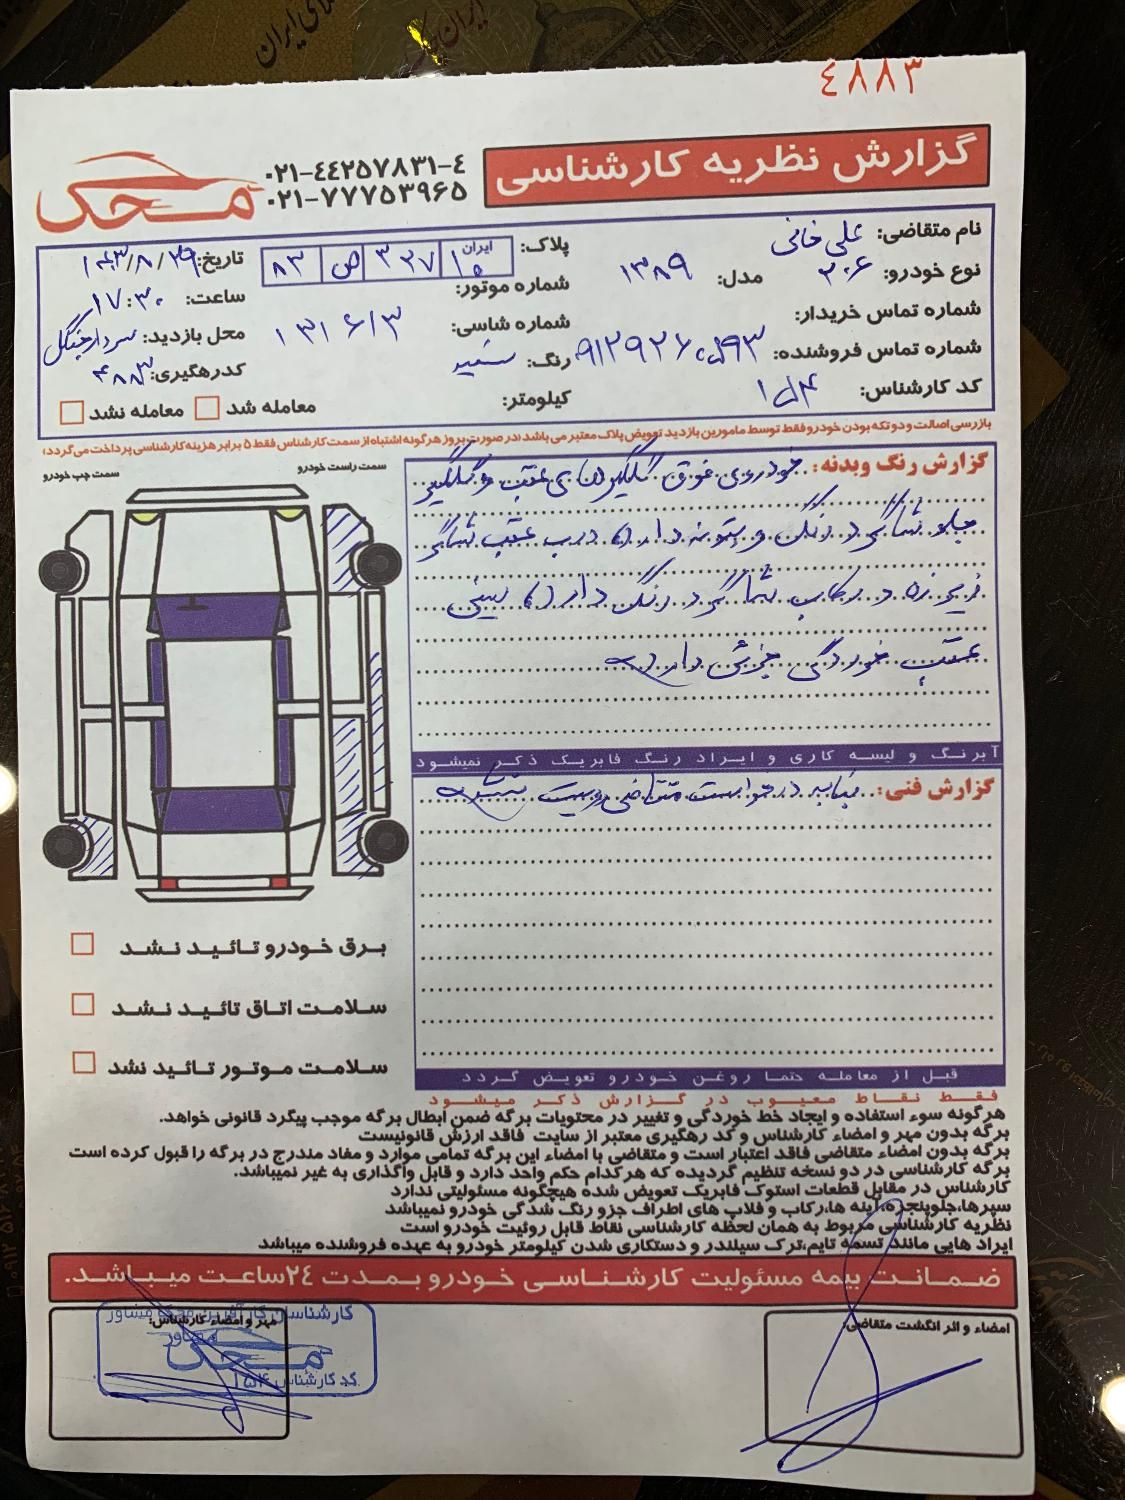 ٤٨٨٣
گزارش نظریه کارشناسی
۰۲۱-٤٤٢٥٧٨٣١-٤
۰۲۱-٧٧٧٥٣٩٦٥
محک
نام متقاضی: علی خانی
نوع خودرو: ۲۰۶ مدل: ۱۳۸۹
شماره تماس خریدار:
شماره تماس فروشنده:
کد کارشناس: ۱۵۴
پلاک: ایران ۱۰ ۳۲۷ ص ۸۳
شماره موتور:
شماره شاسی: ۱۳۱۶۱۳
رنگ: سفید
کیلومتر:
تاریخ: ۱۴۰۳/۸/۲۹
ساعت: ۱۷:۳۰
محل بازدید: سردار جنگل
کدرهگیری: ۴۸۸۳
معامله شد معامله نشد
بازرسی اصالت و دو تکه بودن خودرو فقط توسط مامورین بازدید تعویض پلاک معتبر می باشد، در صورت بروز هرگونه اشتباه از سمت کارشناس فقط ۵ برابر هزینه کارشناسی پرداخت می گردد،
سمت راست خودرو
سمت چپ خودرو
گزارش رنگ وبدنه: خودروی فوق گلگیرهای عقب و گلگیر
جلو شاگرد رنگ و بتونه دارد درب عقب شاگرد
زیر زه و رکاب شاگرد رنگ دارد سینی
عقب خوردگی جزئی دارد
آبرنگ و لیسه کاری و ایراد رنگ فابریک ذکر نمیشود
گزارش فنی: بنابه درخواست متقاضی رویت نشد
قبل از معامله حتما روغن خودرو تعویض گردد
برق خودرو تائید نشد
سلامت اتاق تائید نشد
سلامت موتور تائید نشد
فقط نقاط معیوب در گزارش ذکر میشود
هرگونه سوء استفاده و ایجاد خط خوردگی و تغییر در محتویات برگه ضمن ابطال برگه موجب پیگرد قانونی خواهد.
برگه بدون مهر و امضاء کارشناس و کد رهگیری معتبر از سایت فاقد ارزش قانونیست
برگه بدون امضاء متقاضی فاقد اعتبار است و متقاضی با امضاء این برگه تمامی موارد و مفاد مندرج در برگه را قبول کرده است
برگه کارشناسی در دو نسخه تنظیم گردیده که هرکدام حکم واحد دارد و قابل واگذاری به غیر نمیباشد.
کارشناس در مقابل قطعات استوک فابریک تعویض شده هیچگونه مسئولیتی ندارد
سپرها،جلوپنجره،آینه ها،رکاب و فلاپ های اطراف جزو رنگ شدگی خودرو نمیباشد
نظریه کارشناسی مربوط به همان لحظه کارشناسی نقاط قابل روئیت خودرو است
ایراد هایی مانند تسمه تایم،ترک سیلندر و دستکاری شدن کیلومتر خودرو به عهده فروشنده میباشد
ضمانت بیمه مسئولیت کارشناسی خودرو بمدت ٢٤ساعت میباشد.
امضاء و اثر انگشت متقاضی:
مهر و امضاء کارشناس:
مشاور
محک
کد کارشناس ۱۵۴